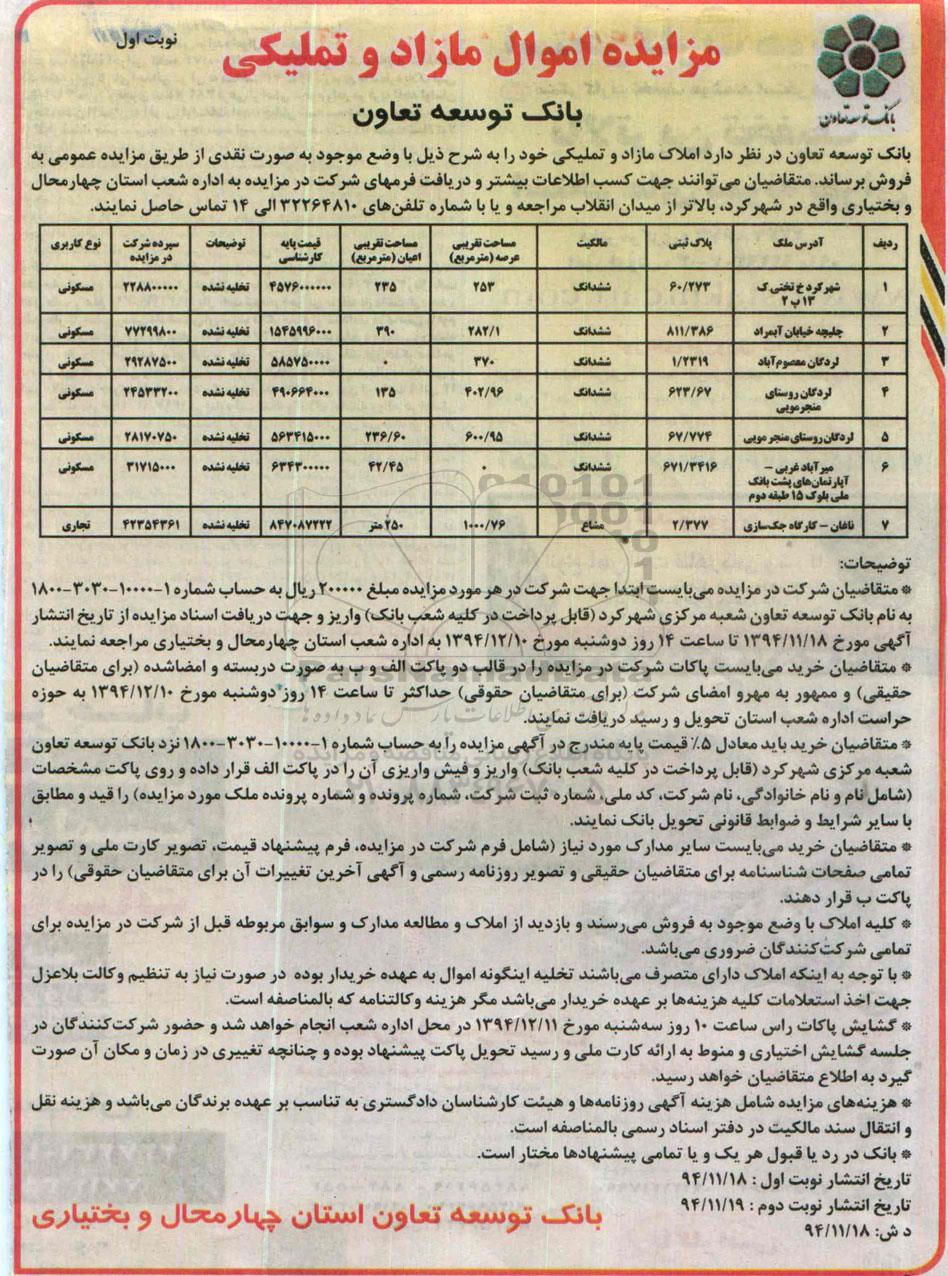 نوبت اول
مزایده اموال مازاد و تملیکی
بانک توسعه تعاون
بانک توسعه تعاون
بانک توسعه تعاون در نظر دارد املاک مازاد و تملیکی خود را به شرح ذیل با وضع موجود به صورت نقدی از طریق مزایده عمومی به
فروش برساند. متقاضیان می‌توانند جهت کسب اطلاعات بیشتر و دریافت فرمهای شرکت در مزایده به اداره شعب استان چهارمحال
و بختیاری واقع در شهرکرد، بالاتر از میدان انقلاب مراجعه و یا با شماره تلفن‌های ۳۲۲۶۴۸۱۰ الی ۱۴ تماس حاصل نمایند.
ردیف آدرس ملک پلاک ثبتی مالکیت مساحت تقریبی عرصه (مترمربع) مساحت تقریبی اعیان (مترمربع) قیمت پایه کارشناسی توضیحات سپرده شرکت در مزایده نوع کاربری
۱ شهرکرد خ تختی ک ۱۳ پ ۲ ۶۰/۲۷۳ ششدانگ ۲۵۳ ۲۳۵ ۴۵۷۶۰۰۰۰۰۰ تخلیه نشده ۲۲۸۸۰۰۰۰۰ مسکونی
۲ چلیچه خیابان آبمراد ۸۱۱/۳۸۶ ششدانگ ۲۸۲/۱ ۳۹۰ ۱۵۴۵۹۹۶۰۰۰ تخلیه نشده ۷۷۲۹۹۸۰۰ مسکونی
۳ لردگان معصوم‌آباد ۱/۲۳۱۹ ششدانگ ۳۷۰ ۰ ۵۸۵۷۵۰۰۰۰ تخلیه نشده ۲۹۲۸۷۵۰۰ مسکونی
۴ لردگان روستای منجرمویی ۶۲۳/۶۷ ششدانگ ۴۰۲/۹۶ ۱۳۵ ۴۹۰۶۶۴۰۰۰ تخلیه نشده ۲۴۵۳۳۲۰۰ مسکونی
۵ لردگان روستای منجر مویی ۶۷/۷۷۴ ششدانگ ۶۰۰/۹۵ ۲۳۶/۶۰ ۵۶۳۴۱۵۰۰۰ تخلیه نشده ۲۸۱۷۰۷۵۰ مسکونی
۶ میرآباد غربی – آپارتمان‌های پشت بانک ملی بلوک ۱۵ طبقه دوم ۶۷۱/۳۴۱۶ ششدانگ ۰ ۴۲/۴۵ ۶۳۴۳۰۰۰۰۰ تخلیه نشده ۳۱۷۱۵۰۰۰ مسکونی
۷ ناغان – کارگاه جک‌سازی ۲/۳۷۷ مشاع ۱۰۰۰/۷۶ ۲۵۰ متر ۸۴۷۰۸۷۲۲۲ تخلیه نشده ۴۲۳۵۴۳۶۱ تجاری
توضیحات:
* متقاضیان شرکت در مزایده می‌بایست ابتدا جهت شرکت در هر مورد مزایده مبلغ ۲۰۰۰۰۰ ریال به حساب شماره ۱-۱۰۰۰۰-۳۰۳۰-۱۸۰۰
به نام بانک توسعه تعاون شعبه مرکزی شهرکرد (قابل پرداخت در کلیه شعب بانک) واریز و جهت دریافت اسناد مزایده از تاریخ انتشار
آگهی مورخ ۱۳۹۴/۱۱/۱۸ تا ساعت ۱۴ روز دوشنبه مورخ ۱۳۹۴/۱۲/۱۰ به اداره شعب استان چهارمحال و بختیاری مراجعه نمایند.
* متقاضیان خرید می‌بایست پاکات شرکت در مزایده را در قالب دو پاکت الف و ب به صورت دربسته و امضاشده (برای متقاضیان
حقیقی) و ممهور به مهرو امضای شرکت (برای متقاضیان حقوقی) حداکثر تا ساعت ۱۴ روز دوشنبه مورخ ۱۳۹۴/۱۲/۱۰ به حوزه
حراست اداره شعب استان تحویل و رسید دریافت نمایند.
* متقاضیان خرید باید معادل ۵٪ قیمت پایه مندرج در آگهی مزایده را به حساب شماره ۱-۱۰۰۰۰-۳۰۳۰-۱۸۰۰ نزد بانک توسعه تعاون
شعبه مرکزی شهرکرد (قابل پرداخت در کلیه شعب بانک) واریز و فیش واریزی آن را در پاکت الف قرار داده و روی پاکت مشخصات
(شامل نام و نام خانوادگی، نام شرکت، کد ملی، شماره ثبت شرکت، شماره پرونده و شماره پرونده ملک مورد مزایده) را قید و مطابق
با سایر شرایط و ضوابط قانونی تحویل بانک نمایند.
* متقاضیان خرید می‌بایست سایر مدارک مورد نیاز (شامل فرم شرکت در مزایده، فرم پیشنهاد قیمت، تصویر کارت ملی و تصویر
تمامی صفحات شناسنامه برای متقاضیان حقیقی و تصویر روزنامه رسمی و آگهی آخرین تغییرات آن برای متقاضیان حقوقی) را در
پاکت ب قرار دهند.
* کلیه املاک با وضع موجود به فروش می‌رسند و بازدید از املاک و مطالعه مدارک و سوابق مربوطه قبل از شرکت در مزایده برای
تمامی شرکت‌کنندگان ضروری می‌باشد.
* با توجه به اینکه املاک دارای متصرف می‌باشند تخلیه اینگونه اموال به عهده خریدار بوده در صورت نیاز به تنظیم وکالت بلاعزل
جهت اخذ استعلامات کلیه هزینه‌ها بر عهده خریدار می‌باشد مگر هزینه وکالتنامه که بالمناصفه است.
* گشایش پاکات راس ساعت ۱۰ روز سه‌شنبه مورخ ۱۳۹۴/۱۲/۱۱ در محل اداره شعب انجام خواهد شد و حضور شرکت‌کنندگان در
جلسه گشایش اختیاری و منوط به ارائه کارت ملی و رسید تحویل پاکت پیشنهاد بوده و چنانچه تغییری در زمان و مکان آن صورت
گیرد به اطلاع متقاضیان خواهد رسید.
* هزینه‌های مزایده شامل هزینه آگهی روزنامه‌ها و هیئت کارشناسان دادگستری به تناسب بر عهده برندگان می‌باشد و هزینه نقل
و انتقال سند مالکیت در دفتر اسناد رسمی بالمناصفه است.
* بانک در رد یا قبول هر یک و یا تمامی پیشنهادها مختار است.
تاریخ انتشار نوبت اول : ۹۴/۱۱/۱۸
تاریخ انتشار نوبت دوم : ۹۴/۱۱/۱۹
د ش: ۹۴/۱۱/۱۸
بانک توسعه تعاون استان چهارمحال و بختیاری